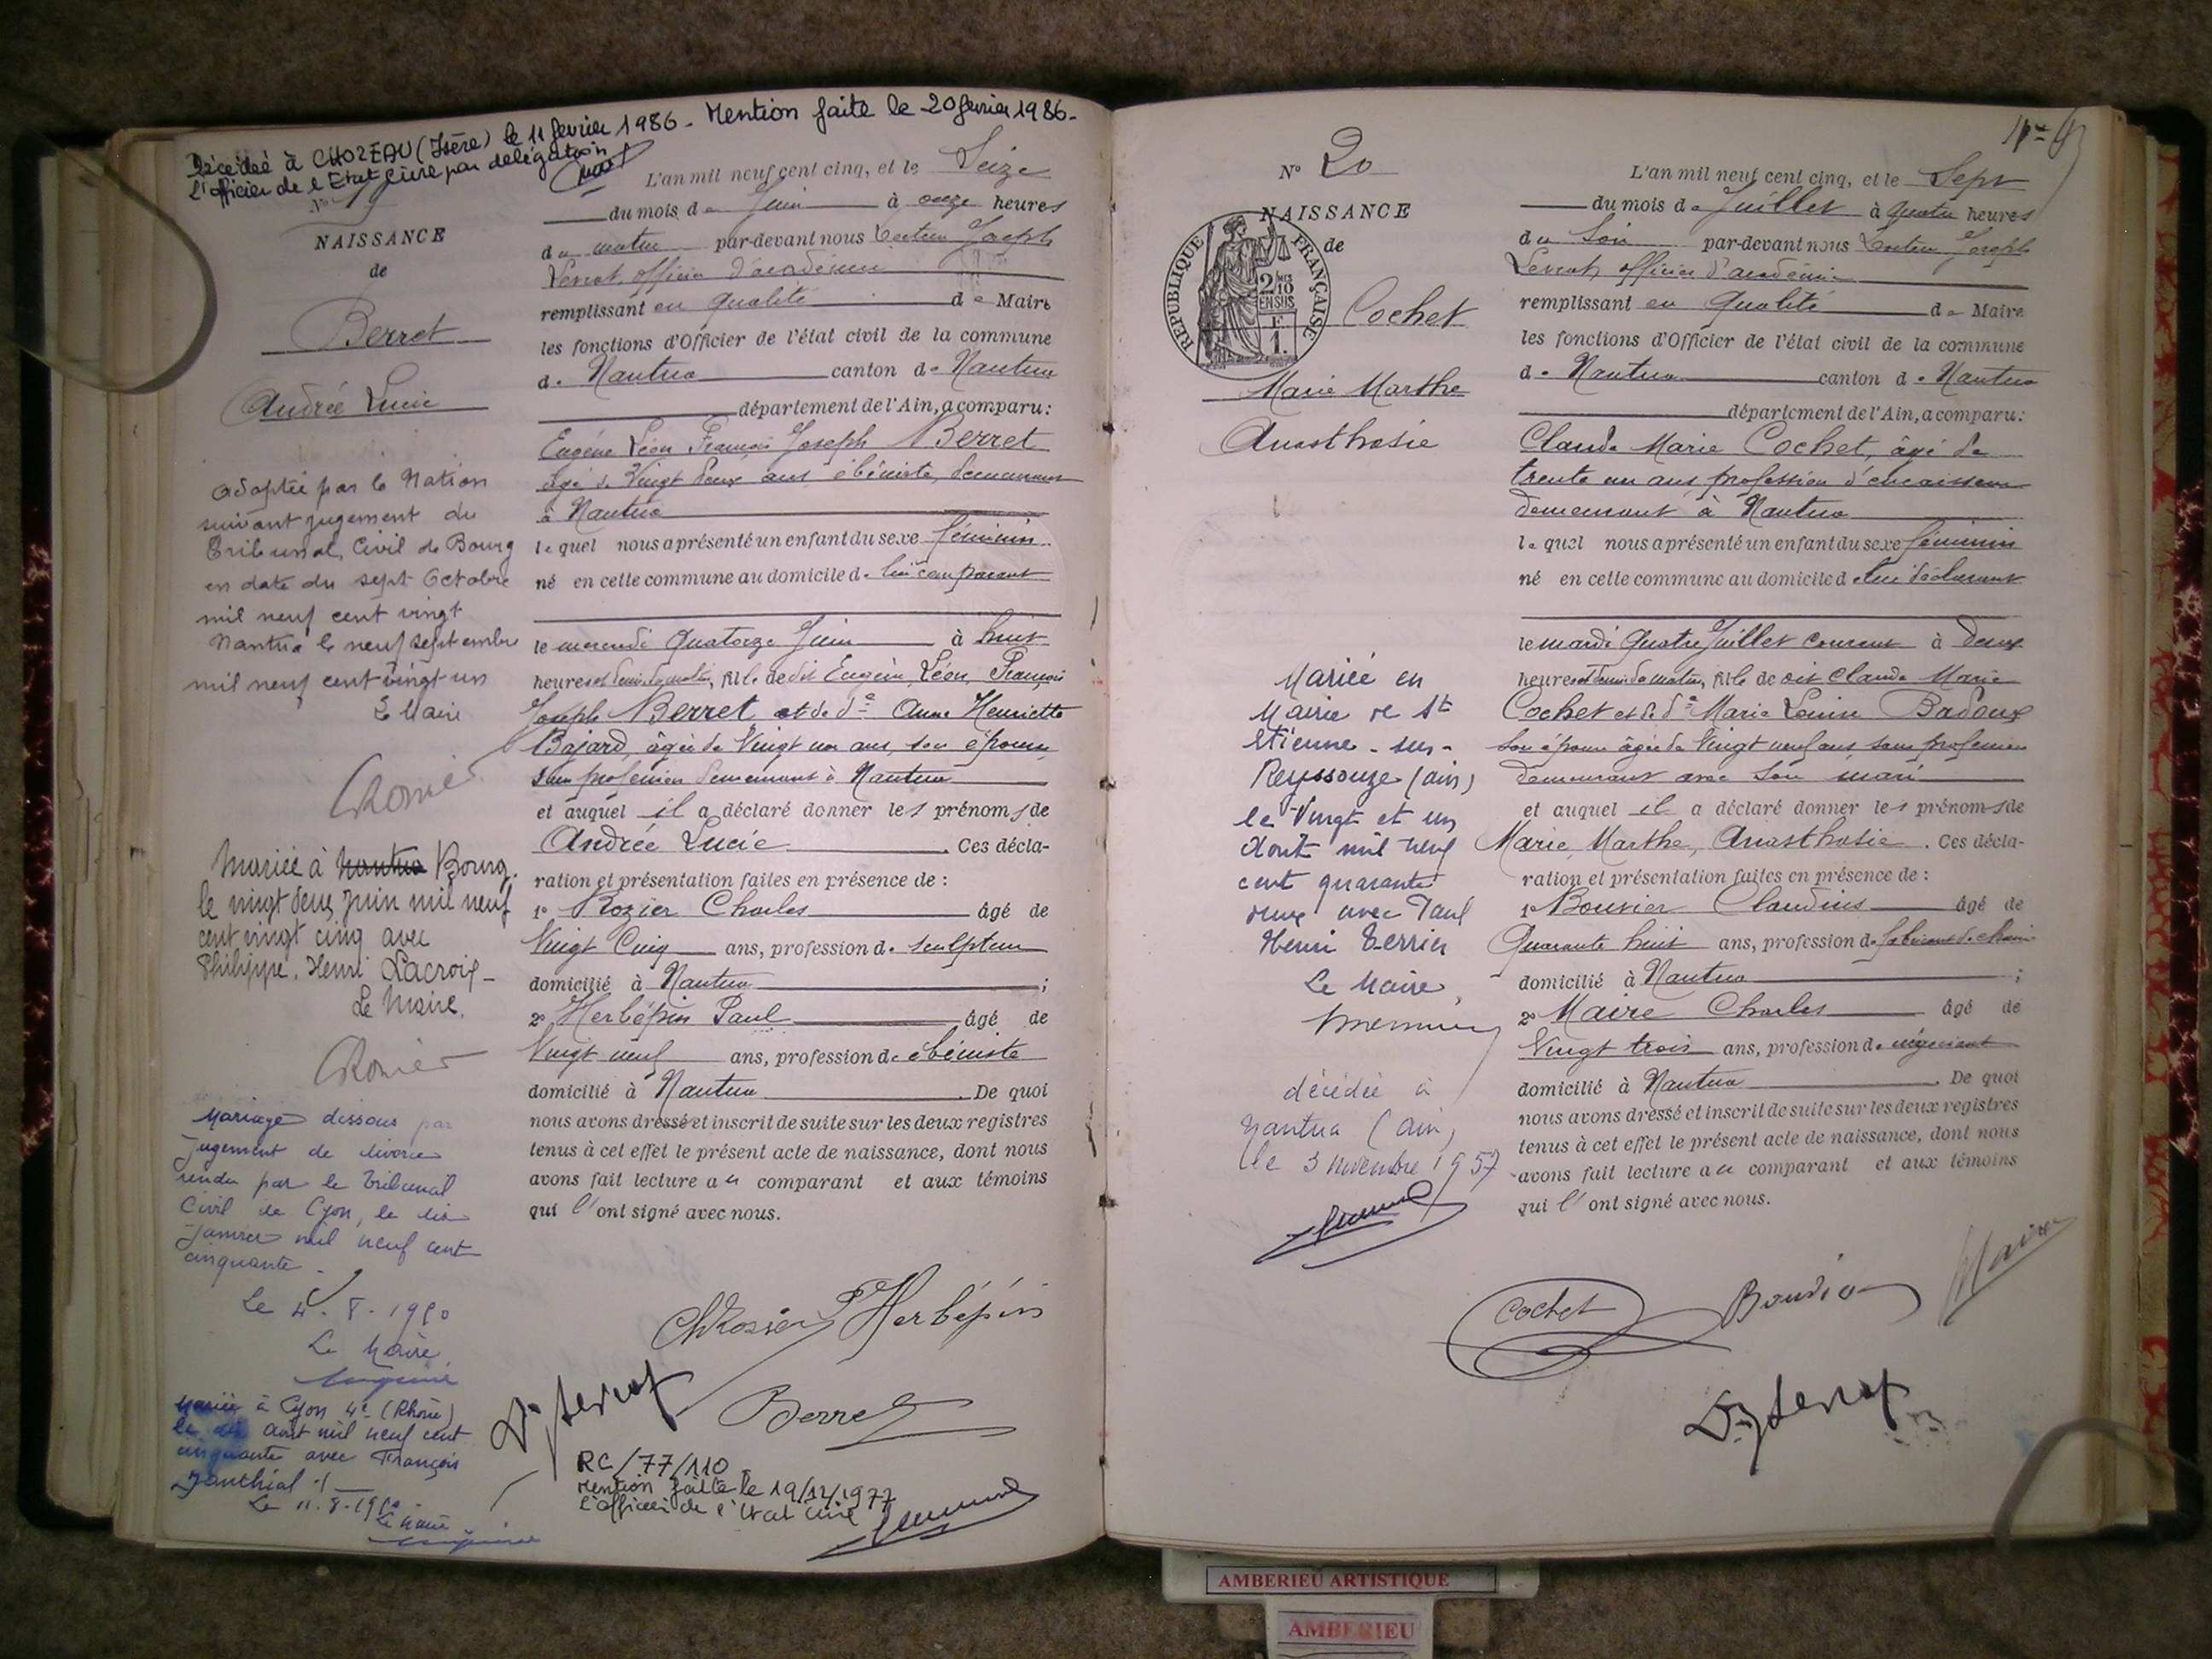 Décédée à CHOZEAU (Isère) le 11 février 1986 - Mention faite le 20 février 1986 -
l'officier de l'Etat civil par délégation
N° 19
NAISSANCE
de
Berret
Andrée Lucie
adoptée par la Nation
suivant jugement du
Tribunal Civil de Bourg
en date du sept Octobre
mil neuf cent vingt
Nantua le neuf septembre
mil neuf cent vingt un
Le Maire
Mariée à Nantua Bourg.
le vingt deux juin mil neuf
cent vingt cinq avec
Philippe. Henri Lacroix -
Le Maire.
Mariage dissous par
jugement de divorce
rendu par le Tribunal
Civil de Lyon, le dix
janvier mil neuf cent
cinquante.
Le 4. 8. 1950
Le Maire,
Mariée à Lyon 4e (Rhône)
le dix août mil neuf cent
cinquante avec François
Janthial ./.
Le 11. 8. 1950.
Le Maire
L'an mil neuf cent cinq, et le Seize
du mois de Juin à onze heures
du matin par-devant nous Docteur Joseph
Sercot, officier d'académie
remplissant en qualité de Maire
les fonctions d'Officier de l'état civil de la commune
de Nantua canton de Nantua
département de l'Ain, a comparu:
Eugène Léon François Joseph Berret
âgé de Vingt deux ans ébéniste, demeurant
à Nantua
lequel nous a présenté un enfant du sexe féminin
né en cette commune au domicile de lui comparant
le mercredi Quatorze Juin à huit
heures et demi du matin, fille de dit Eugène, Léon, François
Joseph Berret et de de Anne Henriette
Bajard, âgée de Vingt un ans, son épouse
sans profession demeurant à Nantua
et auquel il a déclaré donner les prénoms de
Andrée Lucie. Ces décla-
ration et présentation faites en présence de :
1° Rozier Charles âgé de
Vingt Cinq ans, profession de sculpteur
domicilié à Nantua ;
2° Herbépin Paul âgé de
Vingt neuf ans, profession de ébéniste
domicilié à Nantua. De quoi
nous avons dressé et inscrit de suite sur les deux registres
tenus à cet effet le présent acte de naissance, dont nous
avons fait lecture au comparant et aux témoins
qui l'ont signé avec nous.
Ch Rozier P Herbépin
Berret
RC/77/110
Mention faite le 19/12/1977
l'officier de l'Etat Civil
N° 20
NAISSANCE
de
REPUBLIQUE FRANÇAISE
2/10 EN SUS
F. 1.
Cochet
Marie Marthe
Anasthasie
Mariée en
Mairie de St
Etienne-sur-
Reyssouze (ain)
le Vingt et un
Août mil neuf
cent quarante
deux avec Paul
Henri Terrier
Le Maire,
décédée à
Nantua (Ain)
le 3 novembre 1957
L'an mil neuf cent cinq, et le Sept
du mois de Juillet à quatre heures
du Soir par-devant nous Docteur Joseph
Sercot, officier d'académie
remplissant en qualité de Maire
les fonctions d'Officier de l'état civil de la commune
de Nantua canton de Nantua
département de l'Ain, a comparu:
Claude Marie Cochet, âgé de
trente un ans, profession d'encaisseur
demeurant à Nantua
lequel nous a présenté un enfant du sexe féminin
né en cette commune au domicile de lui déclarant
le mardi Quatre Juillet courant à deux
heures et demi du matin, fille de dit Claude Marie
Cochet et de de Marie Louise Badoux
son épouse âgée de Vingt neuf ans sans profession
demeurant avec son mari
et auquel il a déclaré donner les prénoms de
Marie, Marthe, Anasthasie. Ces décla-
ration et présentation faites en présence de :
1° Bouvier Claudius âgé de
Quarante huit ans, profession de fabricant de chaises
domicilié à Nantua ;
2° Maire Charles âgé de
Vingt trois ans, profession de négociant
domicilié à Nantua. De quoi
nous avons dressé et inscrit de suite sur les deux registres
tenus à cet effet le présent acte de naissance, dont nous
avons fait lecture au comparant et aux témoins
qui l'ont signé avec nous.
Cochet Bouvier Maire
AMBERIEU ARTISTIQUE
AMBERIEU